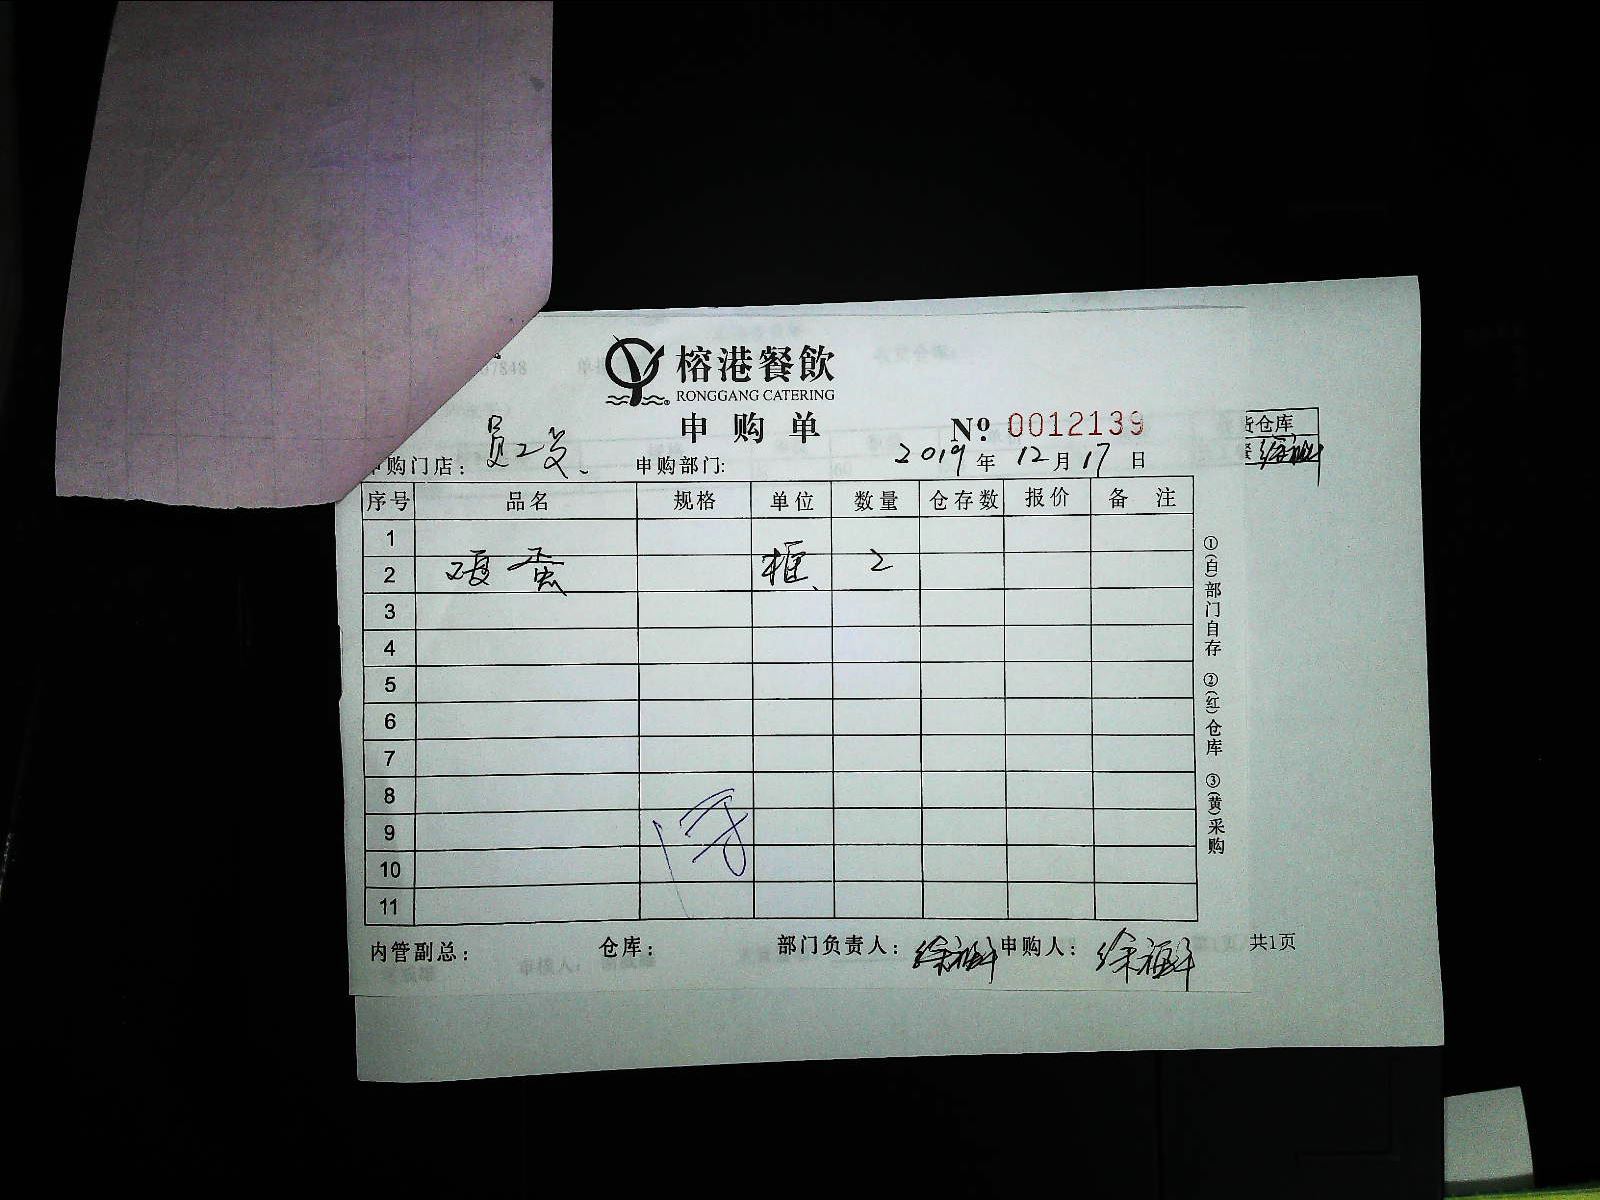 榕港餐飲
RONGGANG CATERING
申购单 Nº 0012139
货仓库
申购门店： 申购部门: 2019年12月17日
序号 品名 规格 单位 数量 仓存数 报价 备注
1
2 蛋 框 2
3
4
5
6
7
8
9
10
11
①(白)部门自存 ②(红)仓库 ③(黄)采购
内管副总： 仓库： 部门负责人： 申购人： 共1页